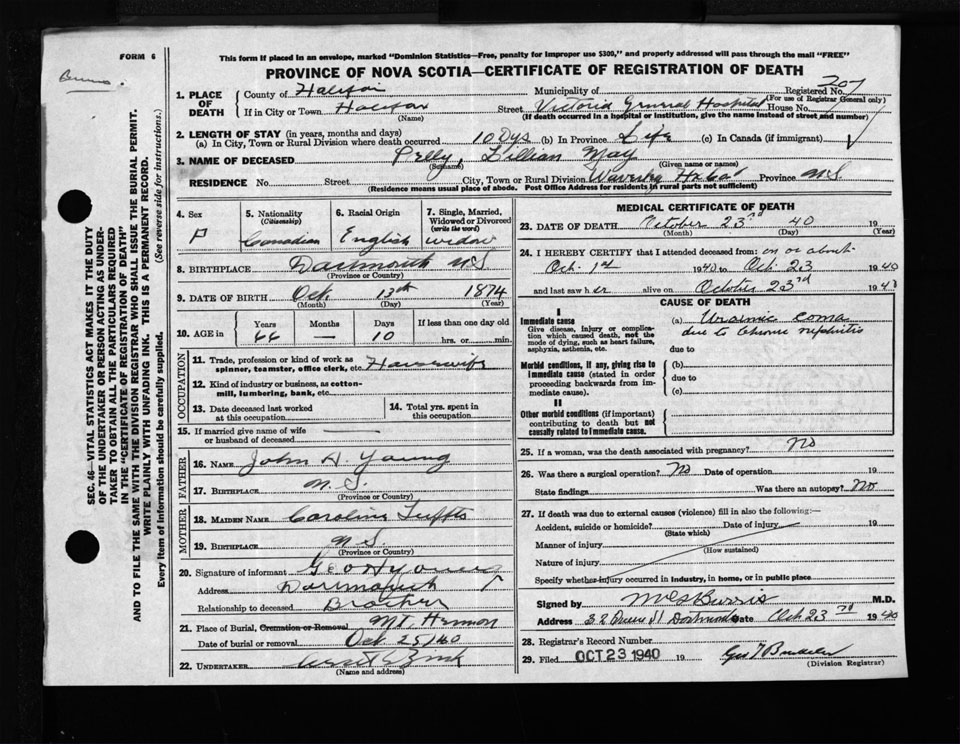 FORM 6
This form if placed in an envelope, marked "Dominion Statistics—Free, penalty for improper use $300," and properly addressed will pass through the mail "FREE"
PROVINCE OF NOVA SCOTIA—CERTIFICATE OF REGISTRATION OF DEATH
Registered No. 707
(For use of Registrar General only)
1. PLACE OF DEATH
County of Halifax Municipality of
If in City or Town Halifax Street Victoria General Hospital House No.
(Name) (If death occurred in a hospital or institution, give the name instead of street and number)
2. LENGTH OF STAY (in years, months and days)
(a) In City, Town or Rural Division where death occurred 10 Dys (b) In Province Life (c) In Canada (if immigrant)
3. NAME OF DECEASED Pelly, Lillian May
(Surname) (Given name or names)
RESIDENCE No. Street City, Town or Rural Division Waverley Province N.S.
(Residence means usual place of abode. Post Office Address for residents in rural parts not sufficient)
4. Sex F
5. Nationality (Citizenship) Canadian
6. Racial Origin English
7. Single, Married, Widowed or Divorced (write the word) widow
8. BIRTHPLACE Dartmouth N S
(Province or Country)
9. DATE OF BIRTH Oct 13th 1874
(Month) (Day) (Year)
10. AGE in Years Months Days If less than one day old
66 — 10 hrs. or min.
OCCUPATION
11. Trade, profession or kind of work as spinner, teamster, office clerk, etc. Housewife
12. Kind of industry or business, as cotton-mill, lumbering, bank, etc.
13. Date deceased last worked at this occupation
14. Total yrs. spent in this occupation
15. If married give name of wife or husband of deceased
FATHER
16. NAME John A. Young
17. BIRTHPLACE N. S.
(Province or Country)
MOTHER
18. MAIDEN NAME Caroline Tuffts
19. BIRTHPLACE N S.
(Province or Country)
20. Signature of informant Geo H Young
Address Dartmouth
Relationship to deceased Brother
21. Place of Burial, Cremation or Removal Mt. Hermon
Date of burial or removal Oct. 25/40
22. UNDERTAKER Zink
(Name and address)
MEDICAL CERTIFICATE OF DEATH
23. DATE OF DEATH October 23rd 40 19
(Month) (Day) (Year)
24. I HEREBY CERTIFY that I attended deceased from: on or about
Oct. 1st 1940 to Oct. 23 1940
and last saw her alive on October 23rd 194
CAUSE OF DEATH
I
Immediate cause
Give disease, injury or complication which caused death, not the mode of dying, such as heart failure, asphyxia, asthenia, etc.
(a) Uraemic coma
due to Chronic nephritis
due to
Morbid conditions, if any, giving rise to immediate cause (stated in order proceeding backwards from immediate cause).
(b)
due to
(c)
II
Other morbid conditions (if important) contributing to death but not causally related to immediate cause.
25. If a woman, was the death associated with pregnancy? No
26. Was there a surgical operation? No Date of operation 19
State findings Was there an autopsy? No
27. If death was due to external causes (violence) fill in also the following:—
Accident, suicide or homicide? Date of injury 19
(State which)
Manner of injury
(How sustained)
Nature of injury
Specify whether injury occurred in industry, in home, or in public place
Signed by Burris M.D.
Address Dartmouth Date Oct 23rd 1940
28. Registrar's Record Number
29. Filed OCT 23 1940 19
(Division Registrar)
SEC. 46—VITAL STATISTICS ACT MAKES IT THE DUTY
OF THE UNDERTAKER OR PERSON ACTING AS UNDER-
TAKER TO OBTAIN ALL THE PARTICULARS REQUIRED
IN THE "CERTIFICATE OF REGISTRATION OF DEATH"
AND TO FILE THE SAME WITH THE DIVISION REGISTRAR WHO SHALL ISSUE THE BURIAL PERMIT.
WRITE PLAINLY WITH UNFADING INK. THIS IS A PERMANENT RECORD.
Every item of information should be carefully supplied. (See reverse side for instructions.)